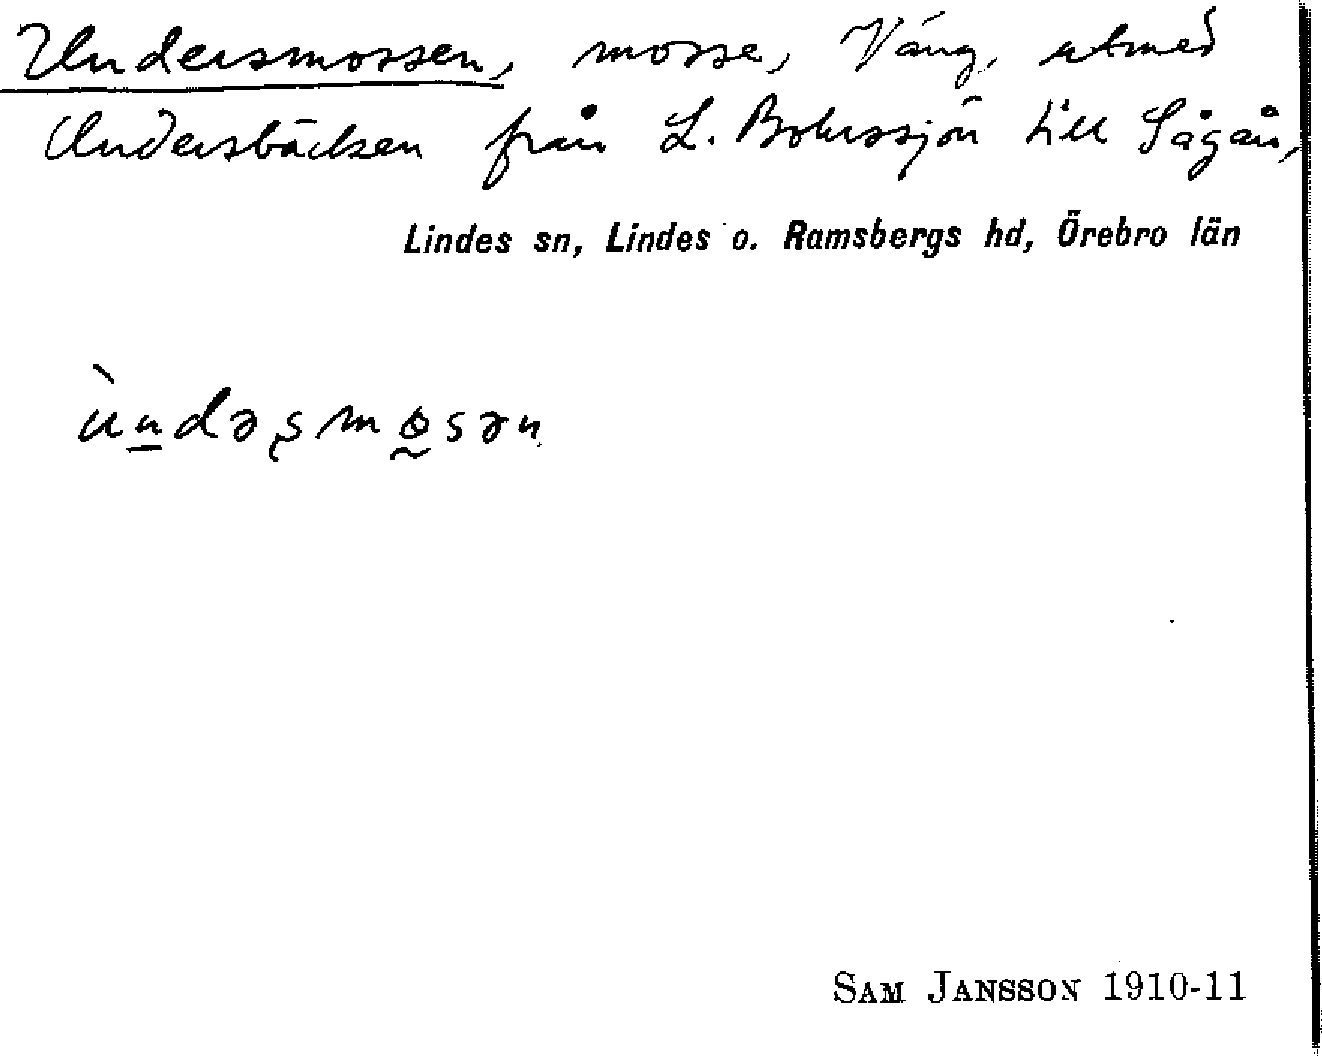 Undersmossen, mosse, Väng, utmed
Undersbäcken från L. Bohrssjön till Sågån,
Lindes sn, Lindes o. Ramsbergs hd, Örebro län
ùndəʂmɵsən
SAM JANSSON 1910-11